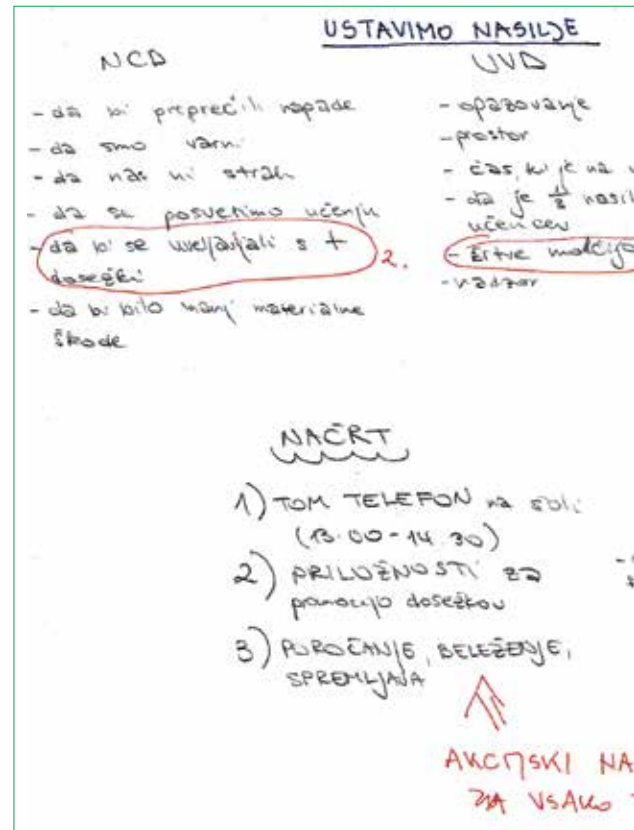 USTAVIMO NASILJE
NCD
- da bi preprečili napade
- da smo varni
- da nas ni strah
- da se posvetimo učenju
- da bi se uveljavljali s +
dosežki
2.
- da bi bilo manj materialne
škode
UVD
- opazovanje
- prostor
- čas, ki je na
- da je
učencev
- žrtve molčijo
- nadzor
NAČRT
1) TOM TELEFON na šoli
(13.00-14.30)
2) PRILOŽNOSTI za
promocijo dosežkov
3) POROČANJE, BELEŽENJE,
SPREMLJAVA
AKCIJSKI NA
ZA VSAKO